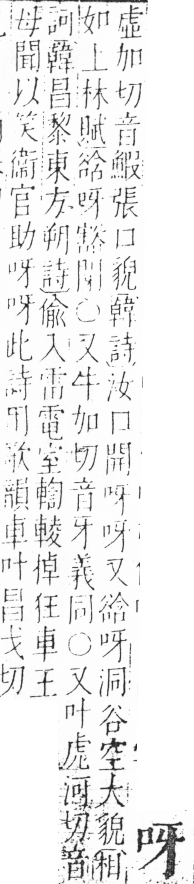 呀
虛加切音鰕張口貌韓詩汝口開呀呀又谽呀洞谷空大貌相
如上林賦谽呀豁閜○又牛加切音牙義同○又叶虎河切音
訶韓昌黎東方朔詩偷入雷電室輷輘掉狂車王
母聞以笑衞官助呀呀此詩用歌韻車叶昌戈切